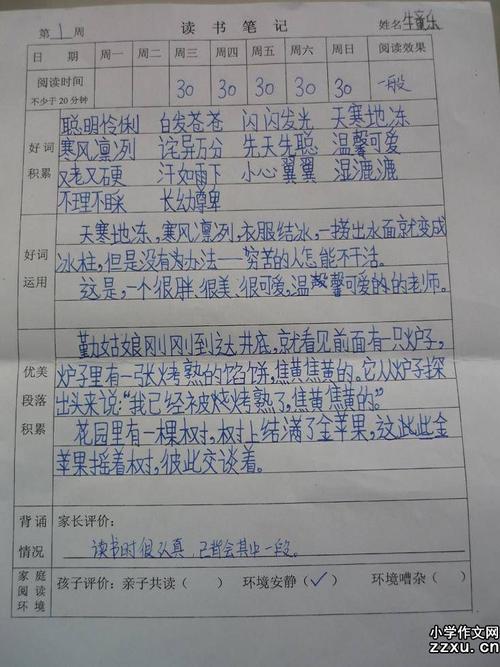 第1周 读书笔记 姓名牛童乐
日期 周一 周二 周三 周四 周五 周六 周日 阅读效果
阅读时间 30 30 30 30 30 一般
不少于20分钟
聪明伶俐 白发苍苍 闪闪发光 天寒地冻
好词 寒风凛冽 诧异万分 先天失聪 温馨可爱
积累 又老又硬 汗如雨下 小心翼翼 湿漉漉
不理不睬 长幼尊卑
天寒地冻,寒风凛冽,衣服结冰,一捞出水面就变成
好词 冰柱,但是没有办法——穷苦的人怎能不干活。
运用 这是,一个很胖、很美、很可爱,温馨可爱的的老师。
勤姑娘刚刚到达井底,就看见前面有一只炉子,
优美 炉子里有一张烤熟的馅饼,焦黄焦黄的。它从炉子探
段落 出头来说:“我已经被烧烤熟了,焦黄焦黄的。”
积累 花园里有一棵树,树上结满了金苹果,这些金
苹果摇着树,彼此交谈着。
背诵 家长评价:
情况 读书时很认真,已背会其中一段。
家庭
阅读 孩子评价:亲子共读( ) 环境安静(✓) 环境嘈杂( )
环境
小学作文网
zzxu.cn